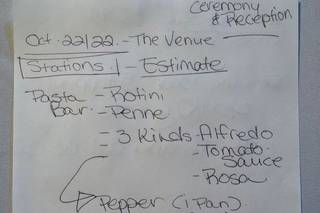 Ceremony
& Reception
Oct. 22/22. - The Venue
Stations! - Estimate
Pasta - Rotini
Bar. - Penne
= 3 Kinds - Alfredo
- Tomato
Sauce
- Rosa
Pepper (1 Pan)